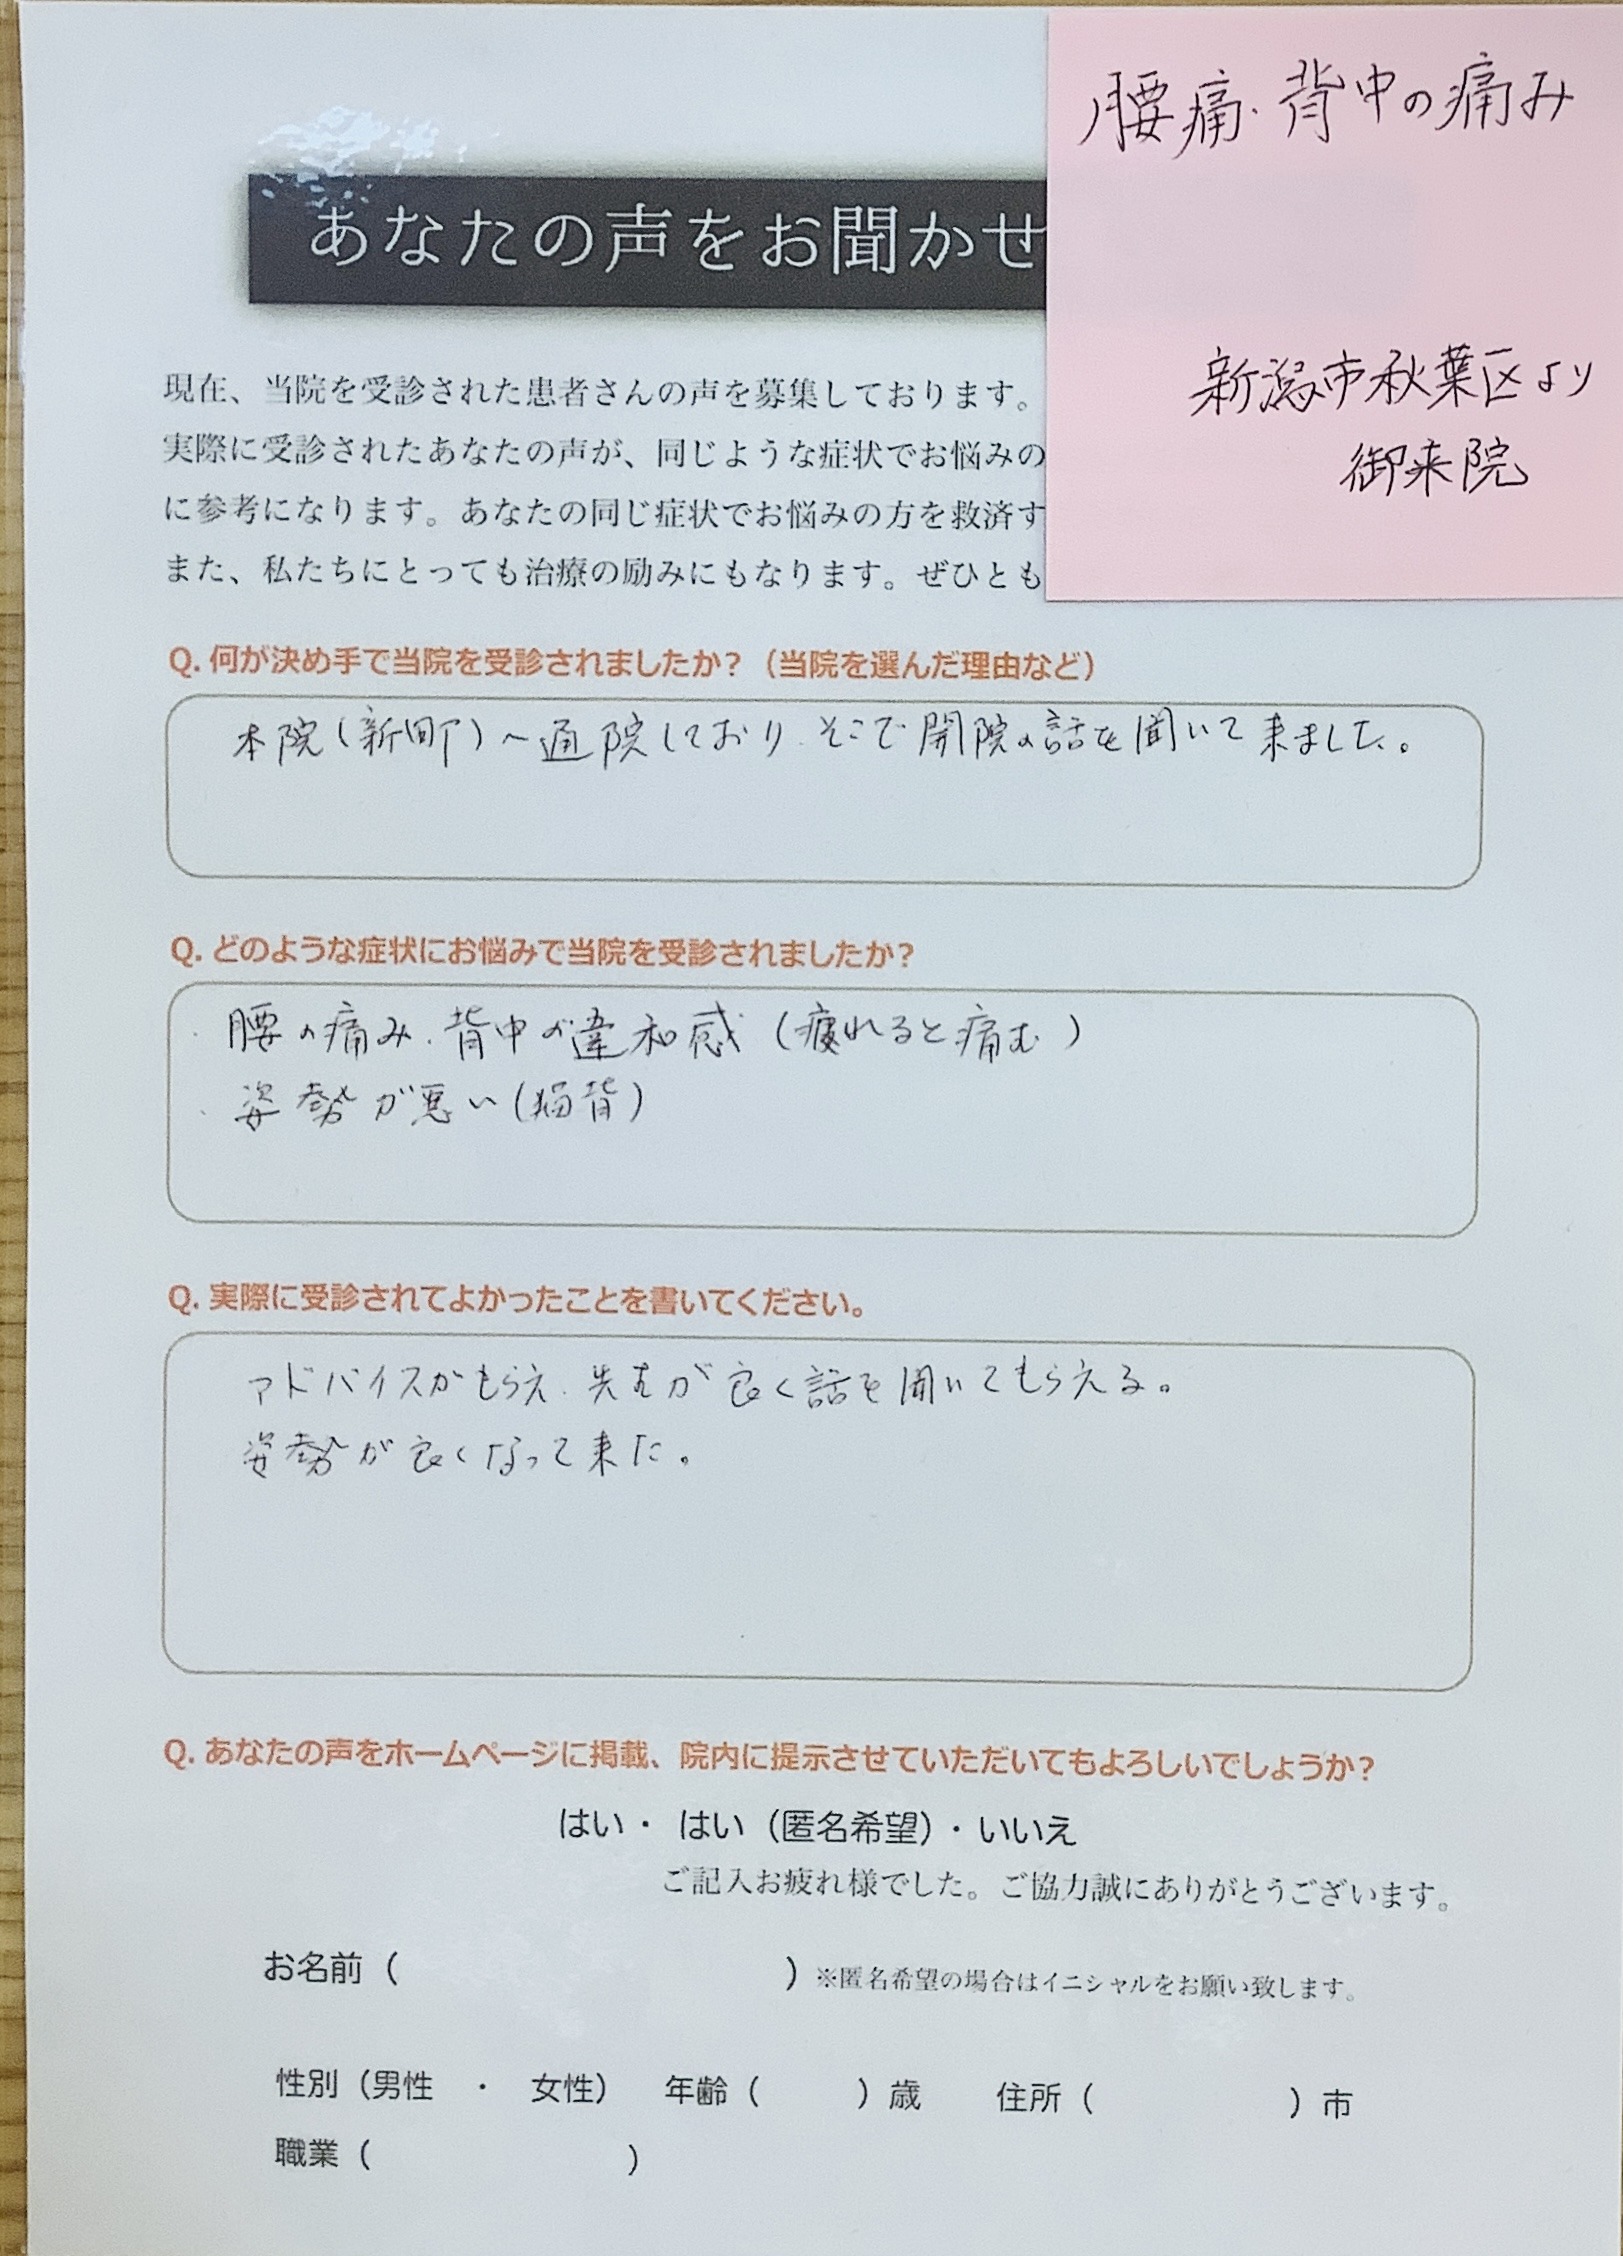 腰痛・背中の痛み
新潟市秋葉区より
御来院
あなたの声をお聞かせ
現在、当院を受診された患者さんの声を募集しております。
実際に受診されたあなたの声が、同じような症状でお悩みの
に参考になります。あなたの同じ症状でお悩みの方を救済す
また、私たちにとっても治療の励みにもなります。ぜひとも
Q. 何が決め手で当院を受診されましたか？（当院を選んだ理由など）
本院（新町）へ通院しており、そこで開院の話を聞いて来ました。
Q. どのような症状にお悩みで当院を受診されましたか？
・腰の痛み、背中の違和感（疲れると痛む）
・姿勢が悪い（猫背）
Q. 実際に受診されてよかったことを書いてください。
アドバイスがもらえ、先生が良く話を聞いてもらえる。
姿勢が良くなって来た。
Q. あなたの声をホームページに掲載、院内に提示させていただいてもよろしいでしょうか？
はい・ はい（匿名希望）・いいえ
ご記入お疲れ様でした。ご協力誠にありがとうございます。
お名前（ ）※匿名希望の場合はイニシャルをお願い致します。
性別（男性 ・ 女性） 年齢（ ）歳 住所（ ）市
職業（ ）